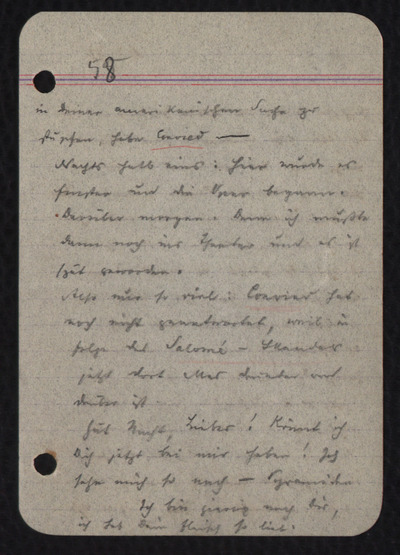 58
in Deiner amerikanischen Sache zu
tun, habe Conried —
Nachts halb eins: hier wurde es
finster und die Oper begann.
Darüber morgen. Denn ich mußte
dann noch ins Theater und es ist
spät geworden.
Also nur so viel: Conried hat
noch nicht geantwortet, weil in
folge des Salomé-Skandals
jetzt dort Alles drunter und
drüber ist
Gut Nacht, Liebes! Könnt ich
Dich jetzt bei mir haben! Ich
sehne mich so nach
Ich bin gierig nach Dir,
ich hab Dein Fleisch so lieb.